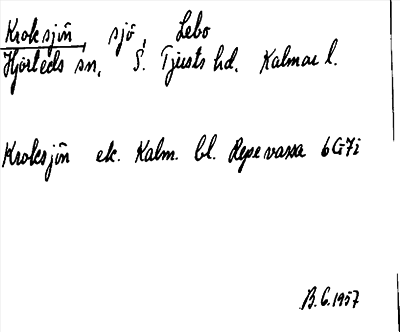 Kroksjön, sjö, Lebo
Hjorteds sn, S. Tjusts hd. Kalmar l.
Kroksjön ek. Kalm. bl. 6G7i
B.G. 1957